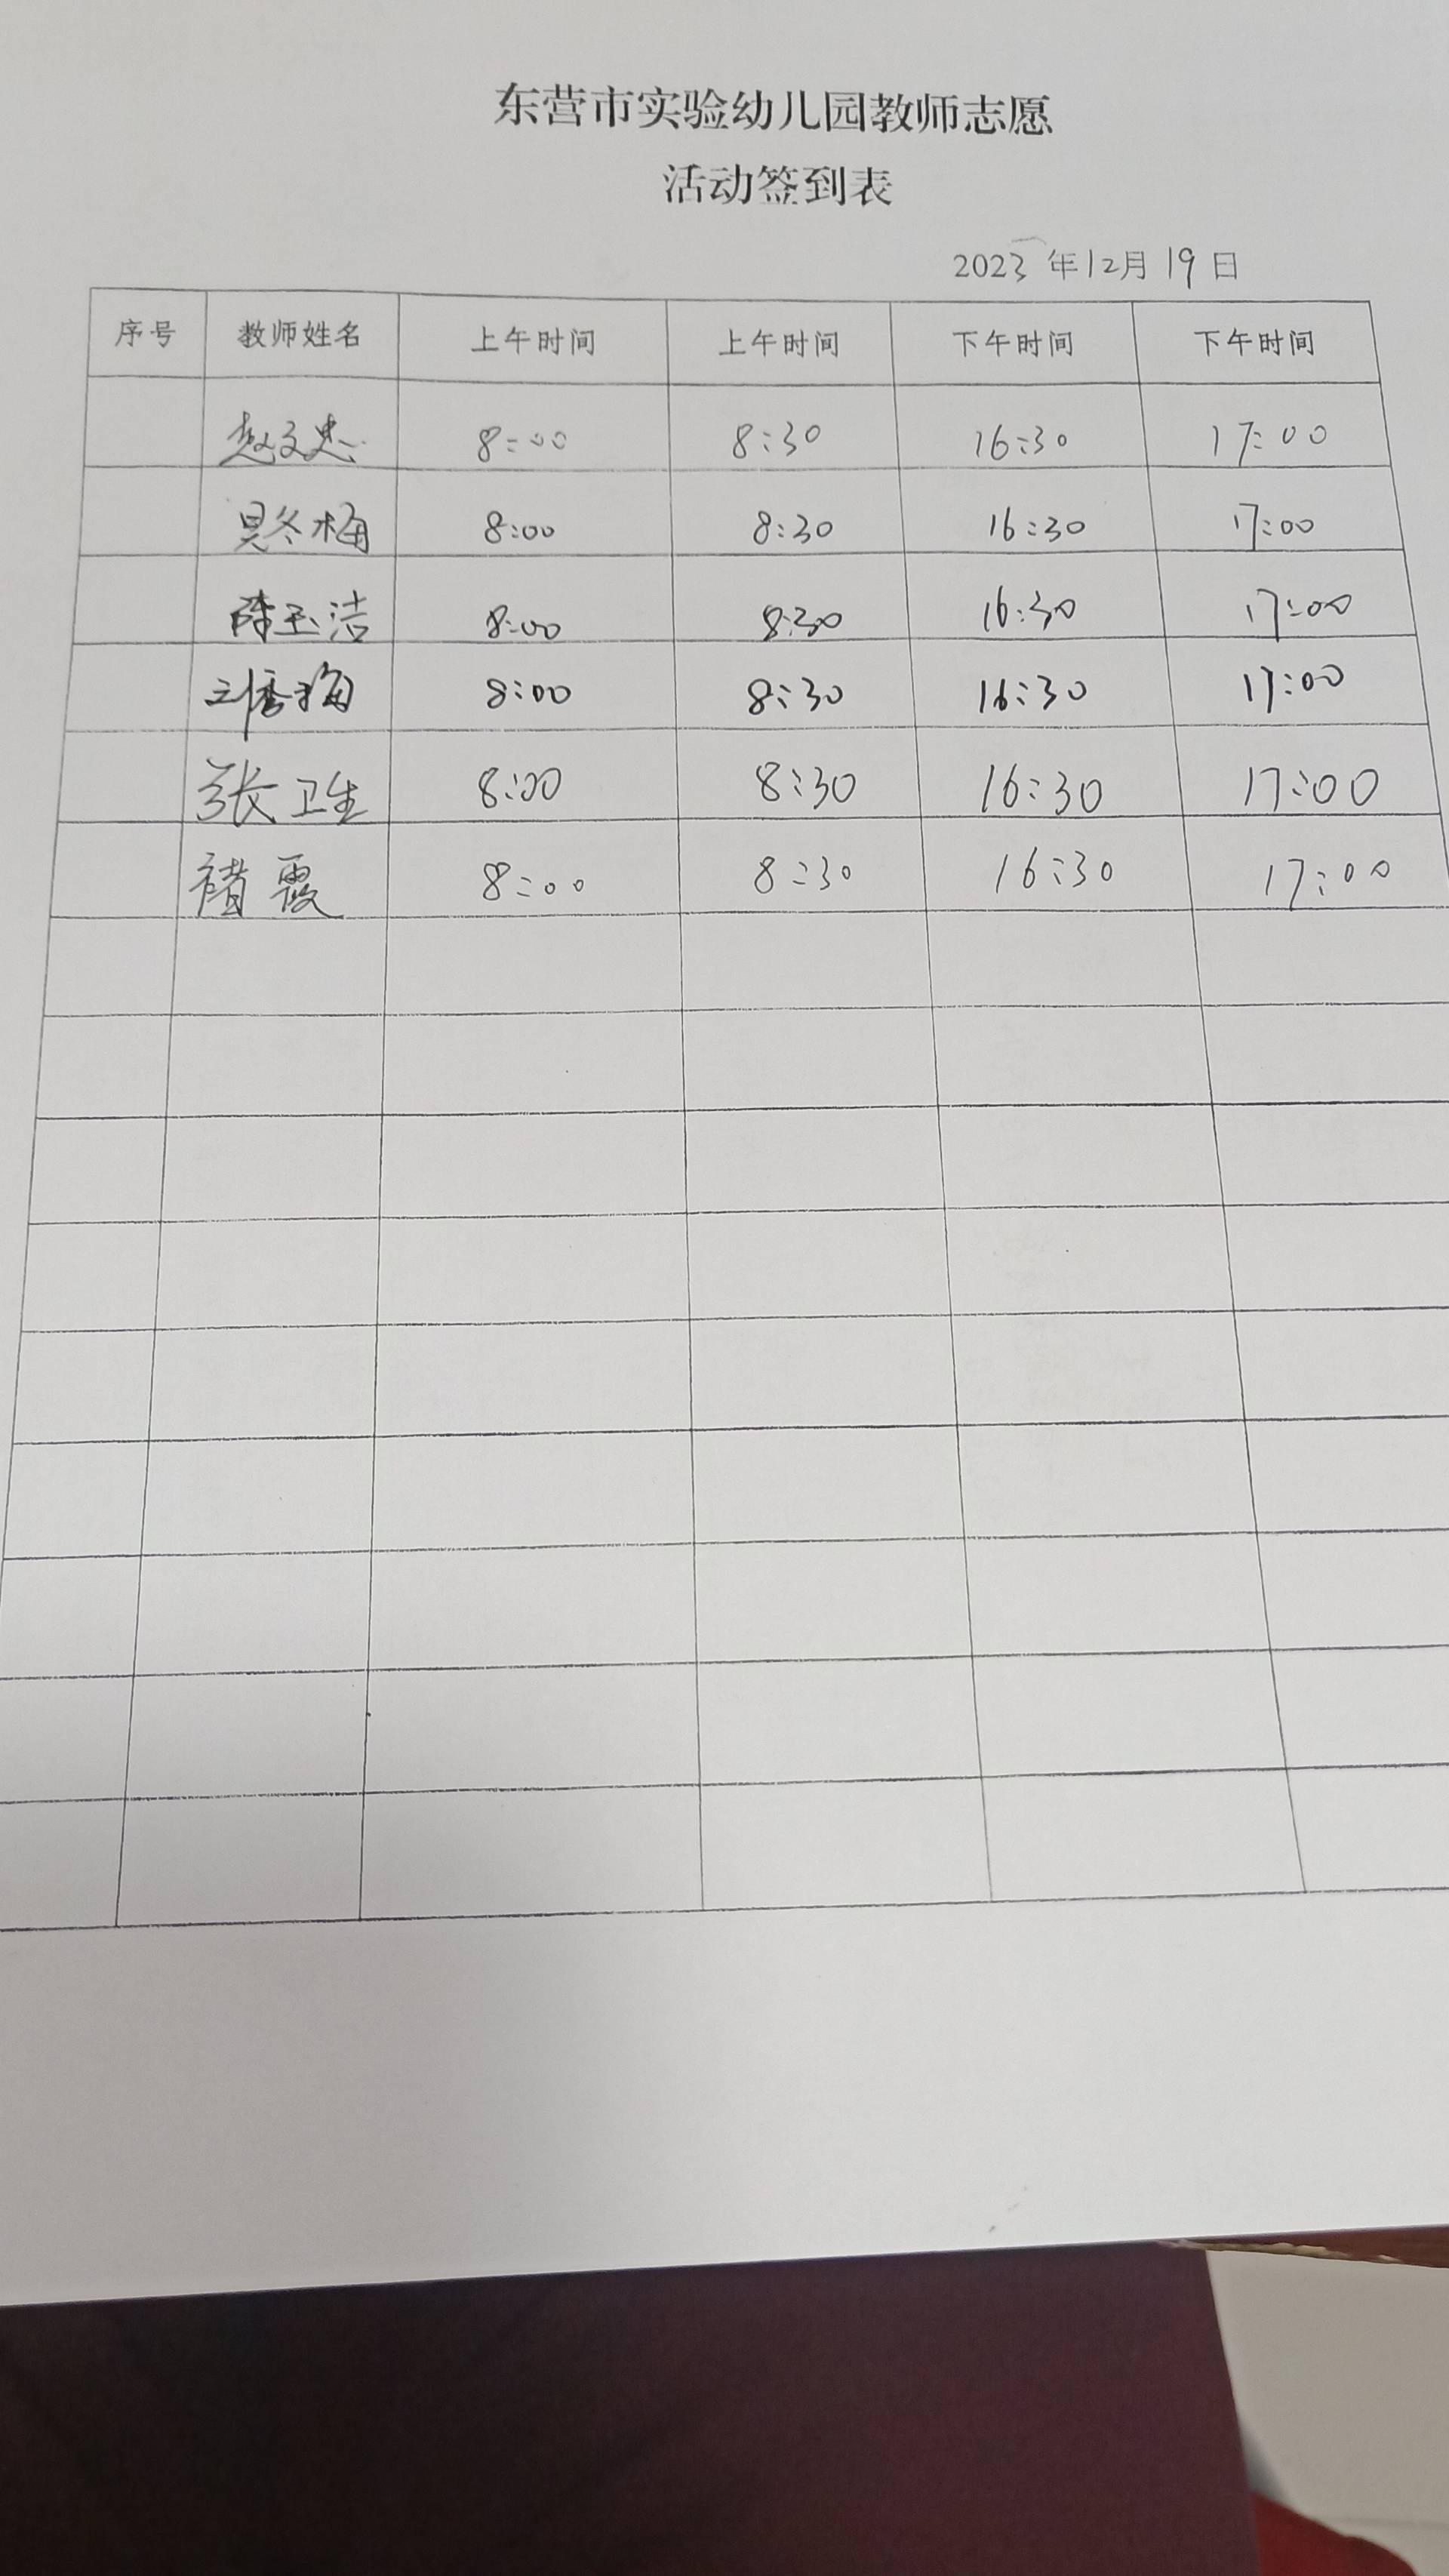 东营市实验幼儿园教师志愿
活动签到表
2023 年12月 19 日
序号 教师姓名 上午时间 上午时间 下午时间 下午时间
赵文忠 8:00 8:30 16:30 17:00
吴冬梅 8:00 8:30 16:30 17:00
陈玉洁 8:00 8:30 16:30 17:00
刘秀梅 8:00 8:30 16:30 17:00
张卫生 8:00 8:30 16:30 17:00
褚霞 8:00 8:30 16:30 17:00